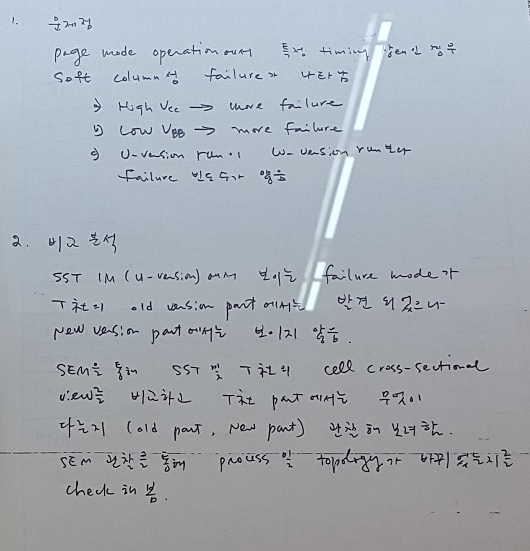 1. 문제점
page mode operation에서 특정 timing 상태인 경우
Soft column성 failure가 나타남
a) High Vcc → more failure
b) Low VBB → more failure
c) U-version run이 W-version run보다
failure 빈도수가 많음
2. 비교 분석
SST 1M (U-version)에서 보이는 failure mode가
T社의 old version part에서는 발견되었으나
New version part에서는 보이지 않음.
SEM을 통해 SST 및 T社의 cell cross-sectional
view를 비교하고 T社 part에서는 무엇이
다른지 (old part, New part) 관찰해 보려함.
SEM 관찰을 통해 process 및 topology가 바뀌었는지를
check해 봄.